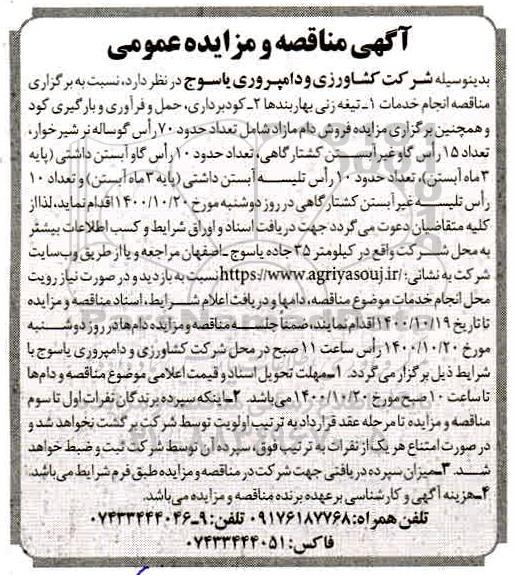 آگهی مناقصه و مزایده عمومی
بدینوسیله شرکت کشاورزی و دامپروری یاسوج در نظر دارد، نسبت به برگزاری
مناقصه انجام خدمات ۱ـ تیغه زنی بهاربندها ۲ـ کودبرداری، حمل و فرآوری و بارگیری کود
و همچنین برگزاری مزایده فروش دام مازاد شامل تعداد حدود ۷۰ رأس گوساله نر شیرخوار،
تعداد ۱۵ رأس گاو غیر آبستن کشتارگاهی، تعداد حدود ۱۰ رأس گاو آبستن داشتی (پایه
۳ ماه آبستن)، تعداد حدود ۱۰ رأس تلیسه آبستن داشتی (پایه ۳ ماه آبستن) و تعداد ۱۰
رأس تلیسه غیر آبستن کشتارگاهی در روز دوشنبه مورخ ۱۴۰۰/۱۰/۲۰ اقدام نماید، لذا از
کلیه متقاضیان دعوت می گردد جهت دریافت اسناد و اوراق شرایط و کسب اطلاعات بیشتر
به محل شرکت واقع در کیلومتر ۳۵ جاده یاسوج-اصفهان مراجعه و یا از طریق وب سایت
شرکت به نشانی: https://www.agriyasouj.ir/ نسبت به بازدید و در صورت نیاز رویت
محل انجام خدمات موضوع مناقصه، دامها و دریافت اعلام شرایط، اسناد مناقصه و مزایده
تا تاریخ ۱۴۰۰/۱۰/۱۹ اقدام نمایند، ضمناً جلسه مناقصه و مزایده دام ها در روز دوشنبه
مورخ ۱۴۰۰/۱۰/۲۰ رأس ساعت ۱۱ صبح در محل شرکت کشاورزی و دامپروری یاسوج با
شرایط ذیل برگزار می گردد. ۱ـ مهلت تحویل اسناد و قیمت اعلامی موضوع مناقصه و دام ها
تا ساعت ۱۰ صبح مورخ ۱۴۰۰/۱۰/۲۰ می باشد. ۲ـ اینکه سپرده برندگان نفرات اول تا سوم
مناقصه و مزایده تا مرحله عقد قرارداد به ترتیب اولویت توسط شرکت برگشت نخواهد شد و
در صورت امتناع هر یک از نفرات به ترتیب فوق، سپرده آن توسط شرکت ثبت و ضبط خواهد
شد. ۳ـ میزان سپرده دریافتی جهت شرکت در مناقصه و مزایده طبق فرم شرایط می باشد.
۴ـ هزینه آگهی و کارشناسی بر عهده برنده مناقصه و مزایده می باشد.
تلفن همراه: ۰۹۱۷۶۱۸۷۷۶۸ تلفن: ۹ـ۰۷۴۳۳۴۴۴۰۴۶
فاکس: ۰۷۴۳۳۴۴۴۰۵۱